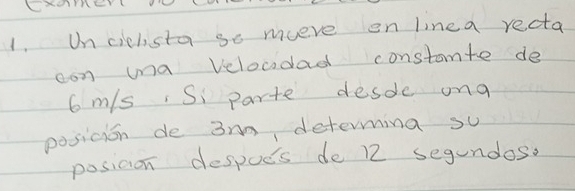 1. Un ciclista se mueve en linea recta
con una velocidad constante de
6 m/s. Si parte desde una
posición de 3m, determina su
posición después de 12 segundos.